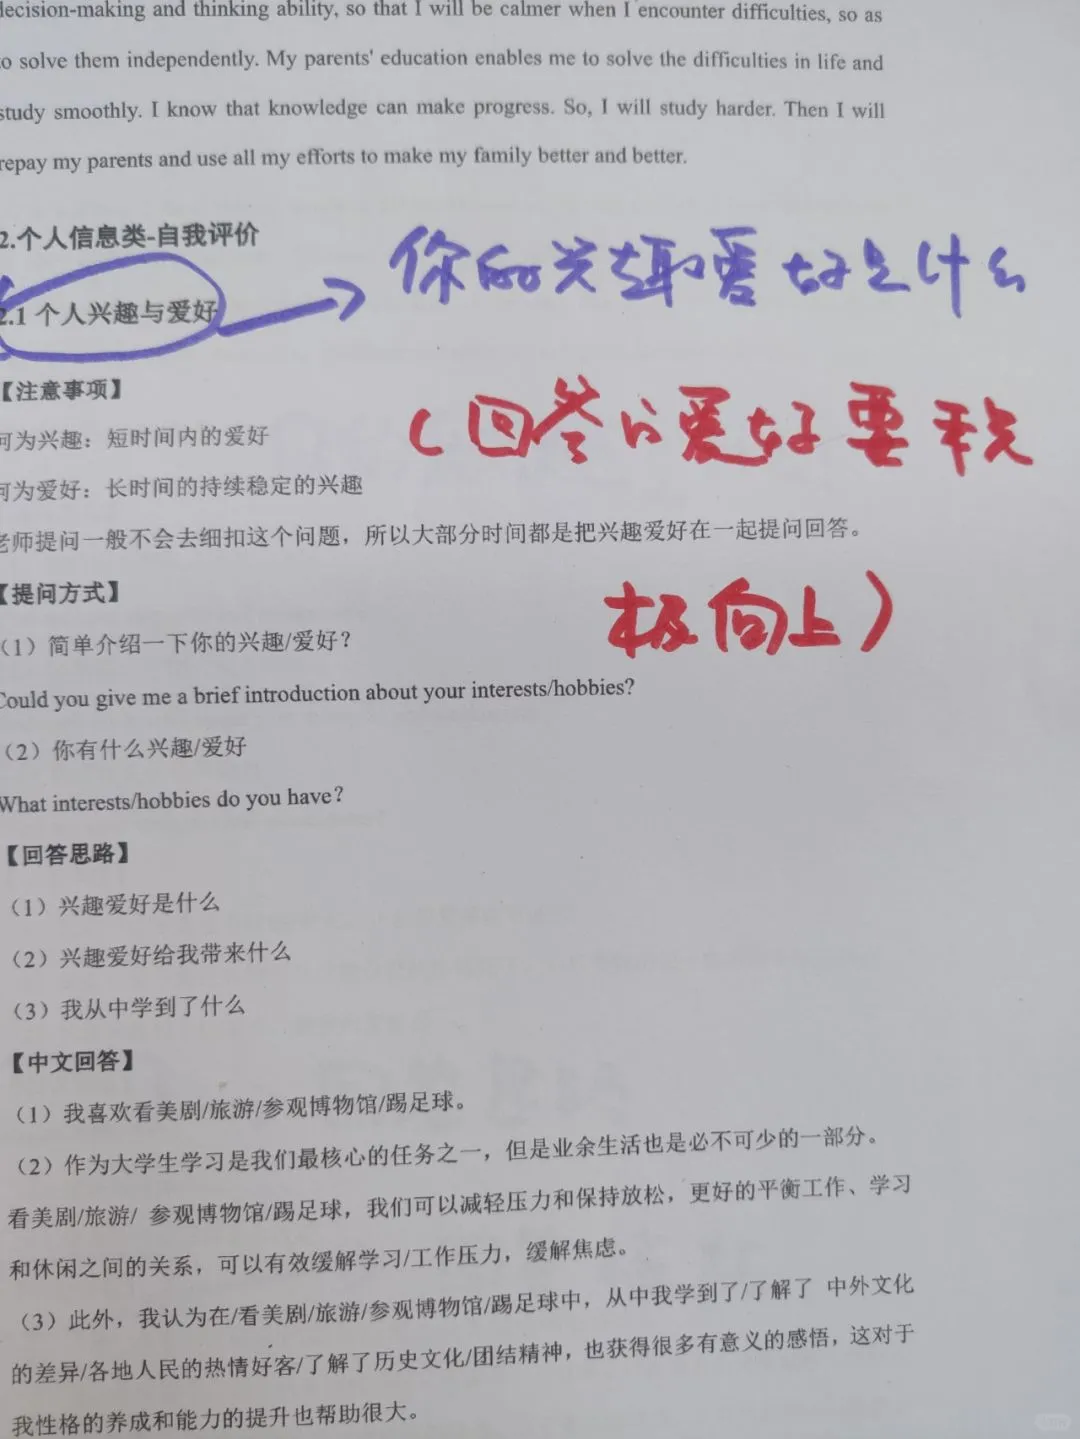 decision-making and thinking ability, so that I will be calmer when I encounter difficulties, so as
to solve them independently. My parents' education enables me to solve the difficulties in life and
study smoothly. I know that knowledge can make progress. So, I will study harder. Then I will
repay my parents and use all my efforts to make my family better and better.
2.个人信息类-自我评价
你的兴趣爱好是什么
2.1 个人兴趣与爱好
【注意事项】
(回答的爱好要积
何为兴趣：短时间内的爱好
何为爱好：长时间的持续稳定的兴趣
老师提问一般不会去细扣这个问题，所以大部分时间都是把兴趣爱好在一起提问回答。
【提问方式】
极向上)
（1）简单介绍一下你的兴趣/爱好？
Could you give me a brief introduction about your interests/hobbies?
（2）你有什么兴趣/爱好
What interests/hobbies do you have?
【回答思路】
（1）兴趣爱好是什么
（2）兴趣爱好给我带来什么
（3）我从中学到了什么
【中文回答】
（1）我喜欢看美剧/旅游/参观博物馆/踢足球。
（2）作为大学生学习是我们最核心的任务之一，但是业余生活也是必不可少的一部分。
看美剧/旅游/ 参观博物馆/踢足球，我们可以减轻压力和保持放松，更好的平衡工作、学习
和休闲之间的关系，可以有效缓解学习/工作压力，缓解焦虑。
（3）此外，我认为在/看美剧/旅游/参观博物馆/踢足球中，从中我学到了/了解了 中外文化
的差异/各地人民的热情好客/了解了历史文化/团结精神，也获得很多有意义的感悟，这对于
我性格的养成和能力的提升也帮助很大。